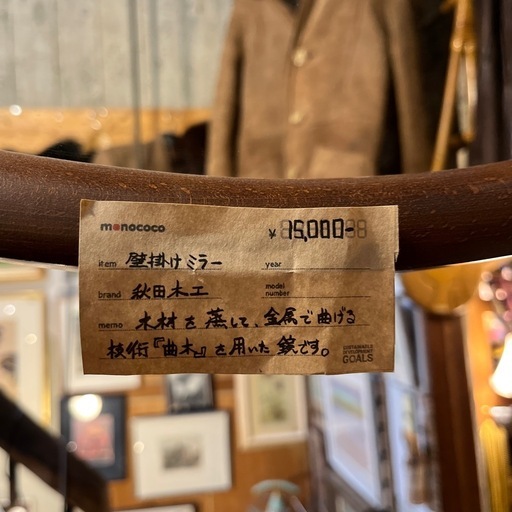 monococo
¥ 15,000-
item 壁掛けミラー year
brand 秋田木工 model number
memo 木材を蒸して、金属で曲げる
技術『曲木』を用いた鏡です。
SUSTAINABLE
DEVELOPMENT
GOALS